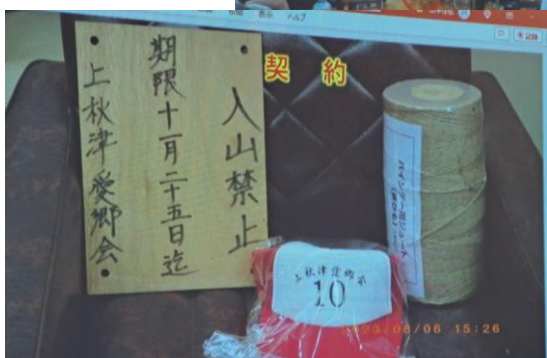 表示 ヘルプ
記録
契約
入山禁止
期限十一月二十五日迄
上秋津愛郷会
上秋津愛郷会
10
2023/06/06 15:26